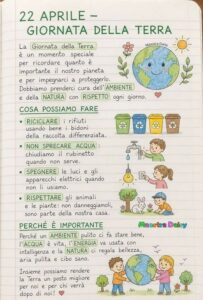 22 APRILE –
GIORNATA DELLA TERRA
La Giornata della Terra
è un momento speciale
per ricordare quanto è
importante il nostro pianeta
e per impegnarci a proteggerlo.
Dobbiamo prenderci cura dell'AMBIENTE
e della NATURA con RISPETTO ogni giorno.
COSA POSSIAMO FARE
• RICICLARE i rifiuti
usando bene i bidoni
della raccolta differenziata.
• NON SPRECARE ACQUA:
chiudiamo il rubinetto
quando non serve.
• SPEGNERE le luci e gli
apparecchi elettrici quando
non li usiamo.
• RISPETTARE gli animali
e le piante: non danneggiandi,
sono parte della nostra casa.
Maestra Daisy
PERCHÉ È IMPORTANTE
Perché un AMBIENTE pulito ci fa stare bene,
l'ACQUA è vita, l'ENERGIA va usata con
intelligenza e la NATURA ci regala bellezza,
aria pulita e cibo sano.
Insieme possiamo rendere
la Terra un posto migliore
per noi e per chi verrà
dopo di noi! ♥